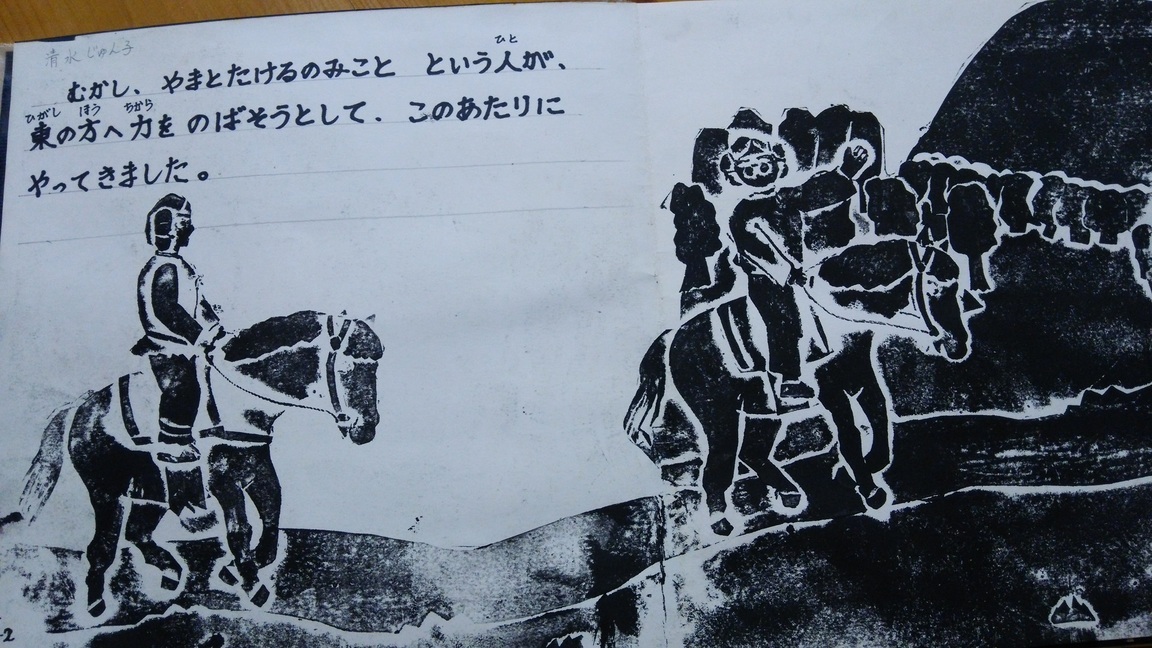 清水じゅん子
ひと
むがし、やまとたけるのみこと という人が、
ひがし ほう ちから
東の方へ力を のばそうとして、このあたりに
やってきました。
2